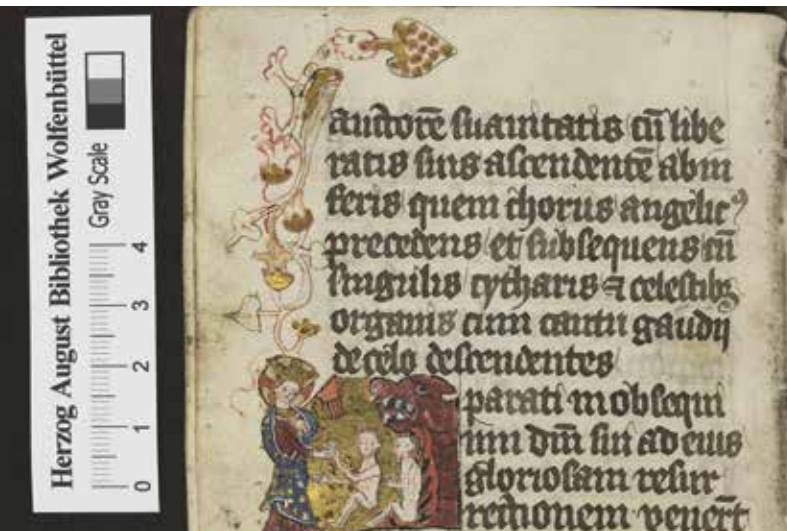 Herzog August Bibliothek Wolfenbüttel
Gray Scale
0 1 2 3 4
auctorē suauitatis cū libe
ratis suis ascendentē ab in
feris quem chorus angelicꝰ
precedens et subsequens cū
singulis cytharis ⁊ celestibꝫ
organis cum cantu gaudij
de celo descendentes
parati in obsequi
um dn̄i sui ad eius
gloriosam resur
rectionem venerūt